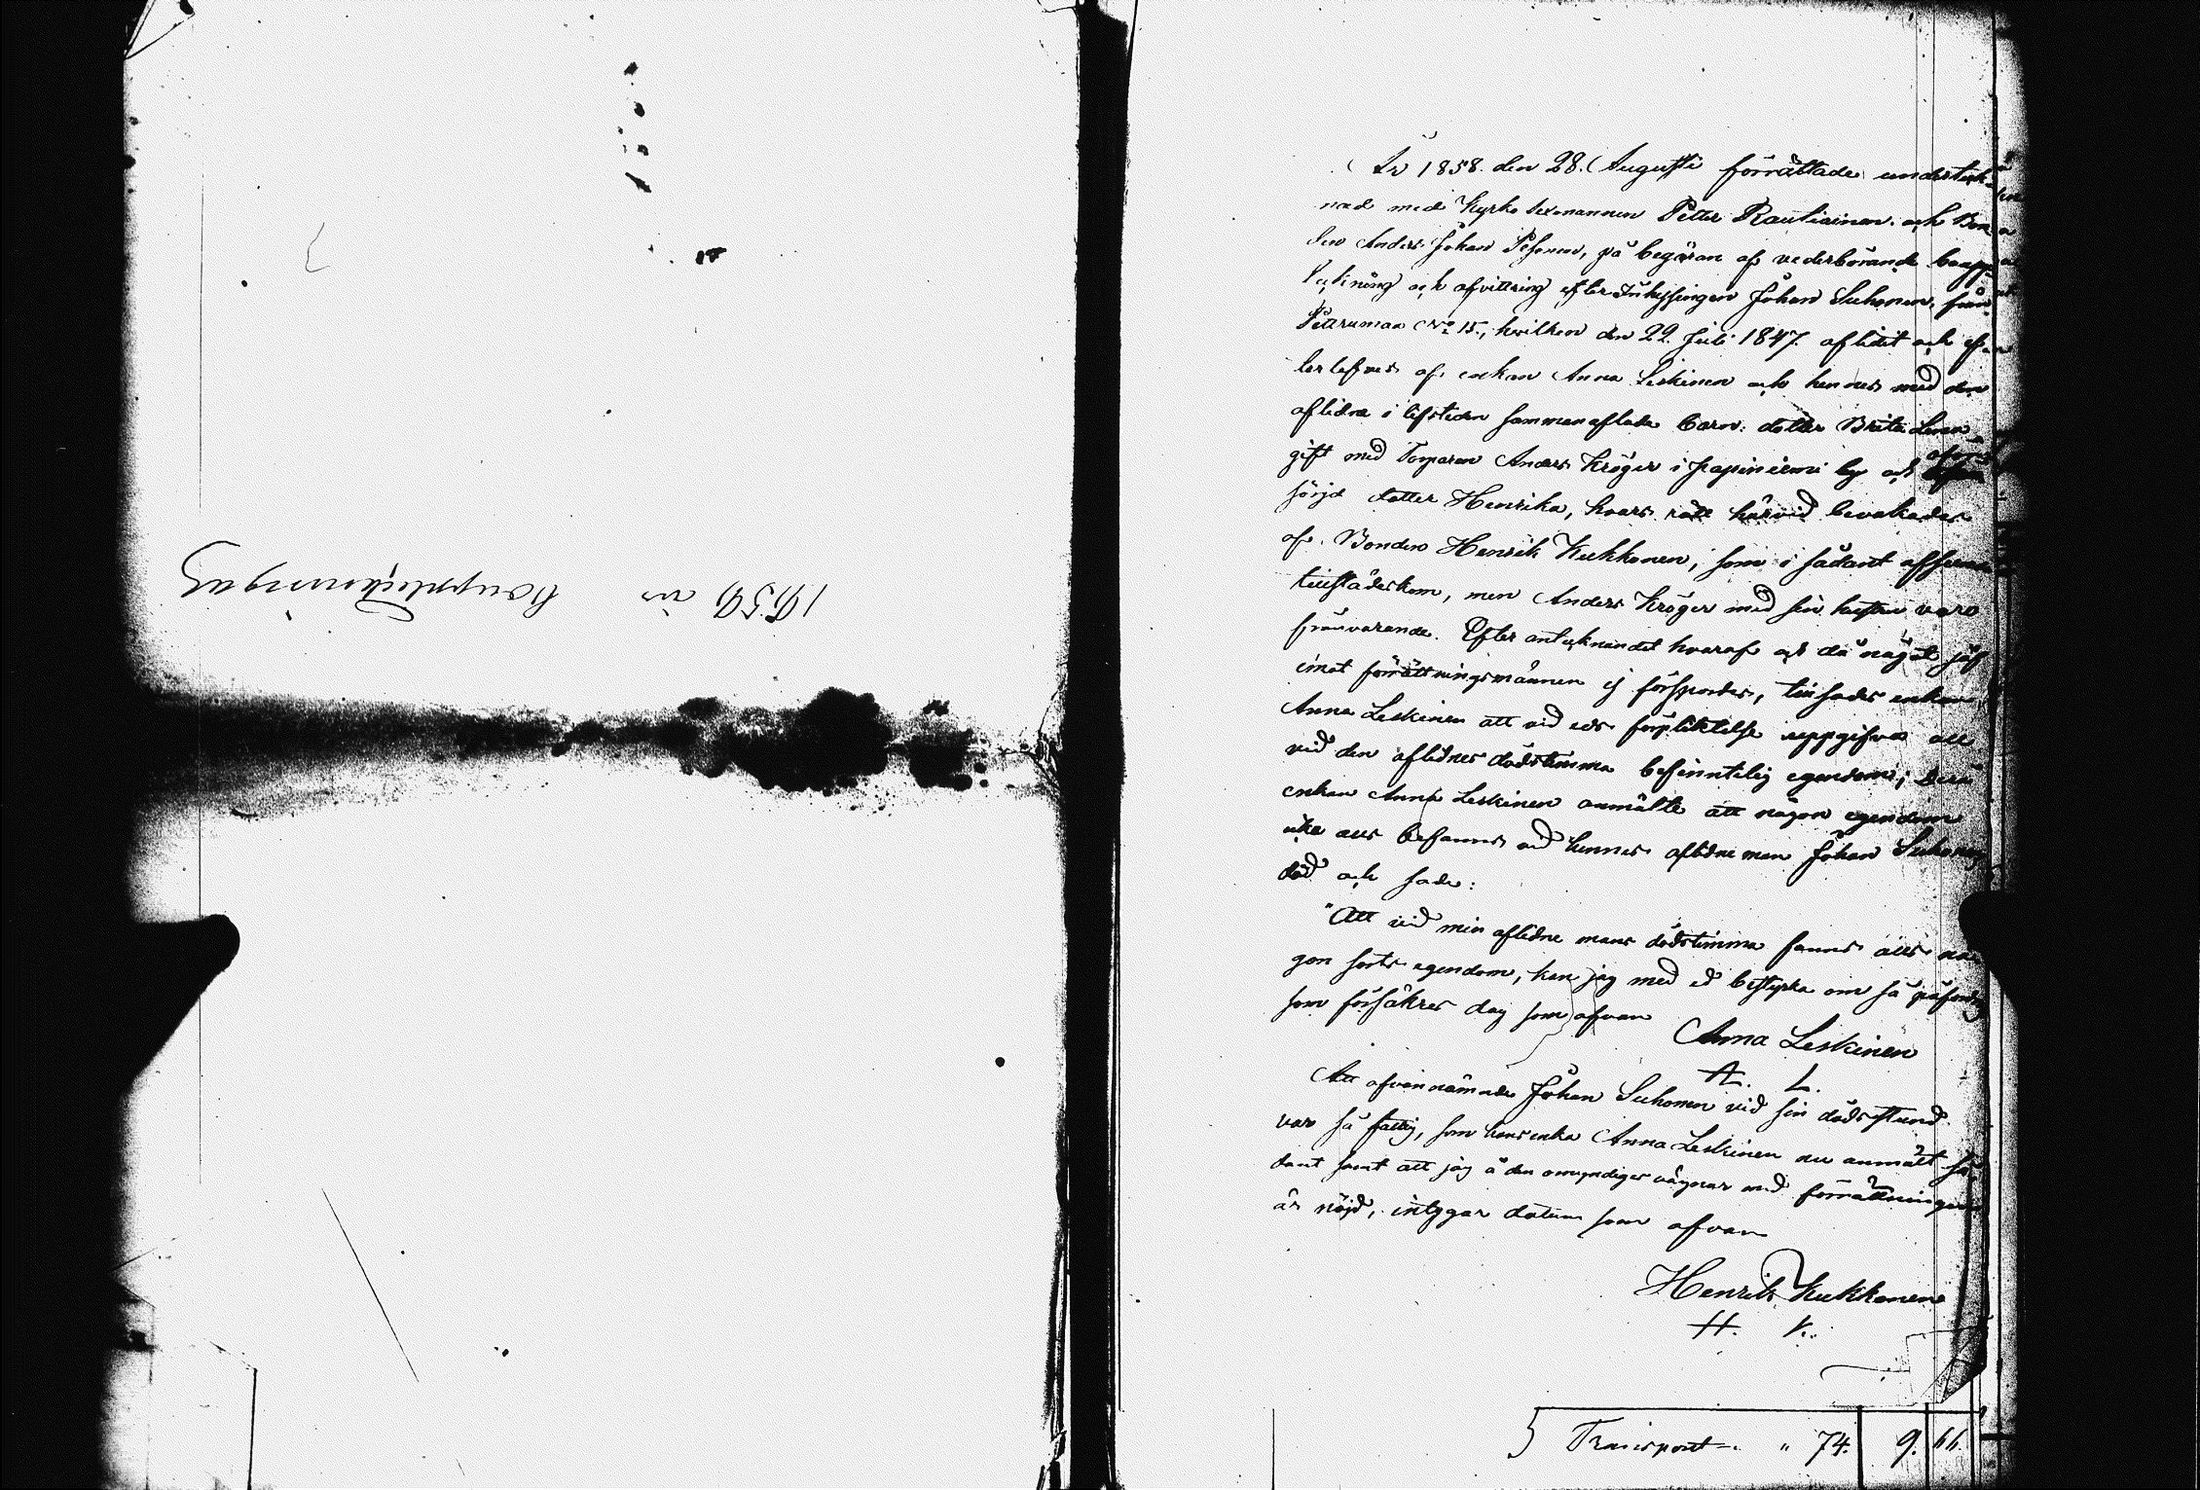 1859 års bouppteckningar
År 1858 den 28 Augusti förrättade underteck-
nad med Kyrko sexmannen Petter Rautiainen och Bon-
den Anders Johan Pesonen, på begäran af vederbörande boupp-
teckning och afvittring efter Inhysingen Johan Suhonen från
Petrumaa No 15, hvilken den 22 Juli 1847 aflidit och ef-
terlefves af enkan Anna Leskinen och hennes med den
aflidne i lifstiden sammanaflade barn: dotter Brita Lena
gift med Torparen Anders Kröger i Papiniemi by och oför-
sörjd dotter Henrika, hvars rätt härvid bevakades
af Bonden Henrik Kukkonen, som i sådant afseende
tillstädeskom, men Anders Kröger med sin hustru voro
frånvarande. Efter antecknandet hvaraf och då något jäf
emot förrättningsmännen ej förspordes, tillsades enkan
Anna Leskinen att vid eds förpliktelse uppgifva all
vid den aflidnes dödstimma befinntelig egendom; derå
enkan Anna Leskinen anmälte att någon egendom
icke alls befanns vid hennes aflidne man Johan Suhonens
död och sade:
"Att vid min aflidne mans dödstimma fanns alls nå-
gon sorts egendom, kan jag med ed bestyrka om så påfordras
som försäkras dag som ofvan
Anna Leskinen
A. L.
Att ofvannämnde Johan Suhonen vid sin dödsstund
var så fattig, som hans enka Anna Leskinen nu anmält så-
dant samt att jag å den omyndiges vägnar med förrättningen
är nöjd, intygar datum som ofvan
Henrik Kukkonen
H. K.
Transport " 74. 9. 66.